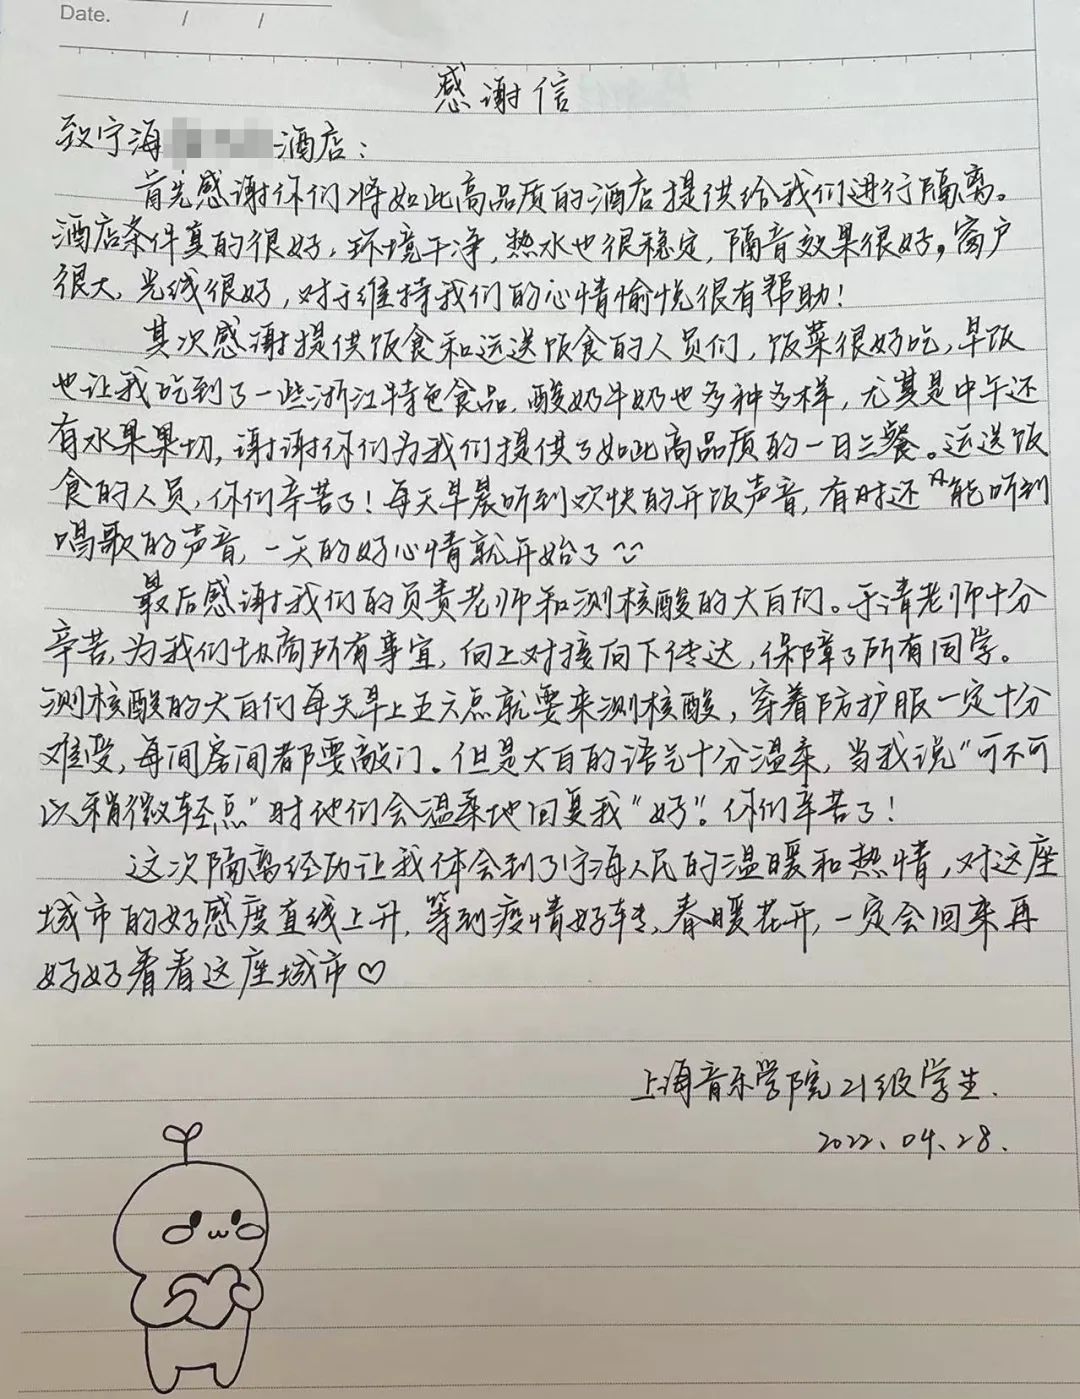 Date. / /
感谢信
致宁海酒店：
首先感谢你们将如此高品质的酒店提供给我们进行隔离。
酒店条件真的很好，环境干净，热水也很稳定，隔音效果很好，窗户
很大，光线很好，对于维持我们的心情愉悦很有帮助！
其次感谢提供饭食和运送饭食的人员们，饭菜很好吃，早饭
也让我吃到了一些浙江特色食品，酸奶牛奶也多种多样，尤其是中午还
有水果果切，谢谢你们为我们提供了如此高品质的一日三餐。运送饭
食的人员，你们辛苦了！每天早晨听到欢快的开饭声音，有时还能听到
唱歌的声音，一天的好心情就开始了
最后感谢我们的负责老师和测核酸的大白们。老师十分
辛苦，为我们协商所有事宜，向上对接向下传达，保障了所有同学。
测核酸的大白们每天早上五六点就要来测核酸，穿着防护服一定十分
难受，每间房间都要敲门。但是大白的语气十分温柔，当我说“可不可
以稍微轻点”时他们会温柔地回复我“好”。你们辛苦了！
这次隔离经历让我体会到了宁海人民的温暖和热情，对这座
城市的好感度直线上升，等到疫情好转，春暖花开，一定会回来再
好好看看这座城市♡
上海音乐学院21级学生.
2022.04.28.